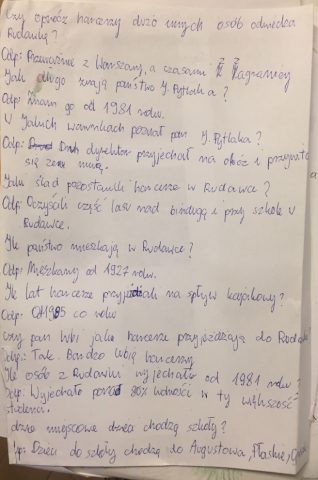 Czy oprócz harcerzy dużo innych osób odwiedza
Rudawkę?
Odp: Przeważnie z Warszawy, a czasami z Zagranicy
Jak długo znają państwo J. Pytlaka?
Odp: Znam go od 1981 roku.
W jakich warunkach poznał pan J. Pytlaka?
Odp: Druh dyrektor przyjechał na obóz i przywitał
się ze mną.
Jaki ślad pozostawili harcerze w Rudawce?
Odp: Oczyścili część lasu nad bindugą i przy szkole w
Rudawce.
Ile państwo mieszkają w Rudawce?
Odp: Mieszkamy od 1927 roku.
Ile lat harcerze przyjeżdżali na spływ kajakowy?
Odp: Od 1985 co roku
czy pan lubi jak harcerze przyjeżdżają do
Odp.: Tak. Bardzo lubię harcerzy
Ile osób z Rudawki wyjechało od 1981 roku?
Odp: Wyjechało ponad 80% ludności w tym większość
miejscowe dzieci chodzą szkoły?
Dzieci do szkoły chodzą do Augustowa, Płaskiej,